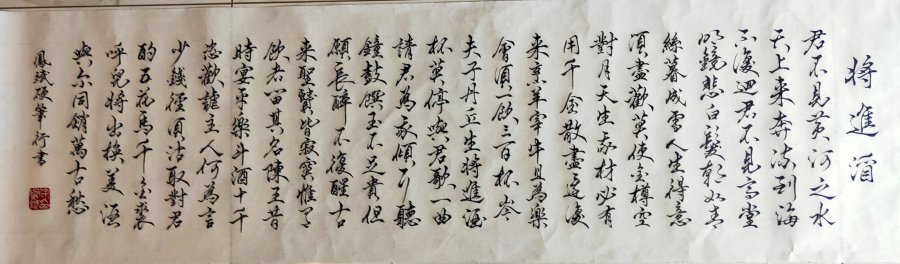 将進酒
君不見黄河之水
天上来奔流到海
不復迴君不見高堂
明鏡悲白髮朝如青
絲暮成雪人生得意
須盡歡莫使金樽空
對月天生我材必有
用千金散盡還復
来烹羊宰牛且為樂
會須一飲三百杯岑
夫子丹丘生将進酒
杯莫停與君歌一曲
請君為我傾耳聽
鐘鼓饌玉不足貴但
願長醉不復醒古
来聖賢皆寂寞惟有
飲者留其名陳王昔
時宴平樂斗酒十千
恣歡謔主人何為言
少錢徑須沽取對君
酌五花馬千金裘
呼兒将出换美酒
與尔同銷萬古愁
鳳斌硬筆行書